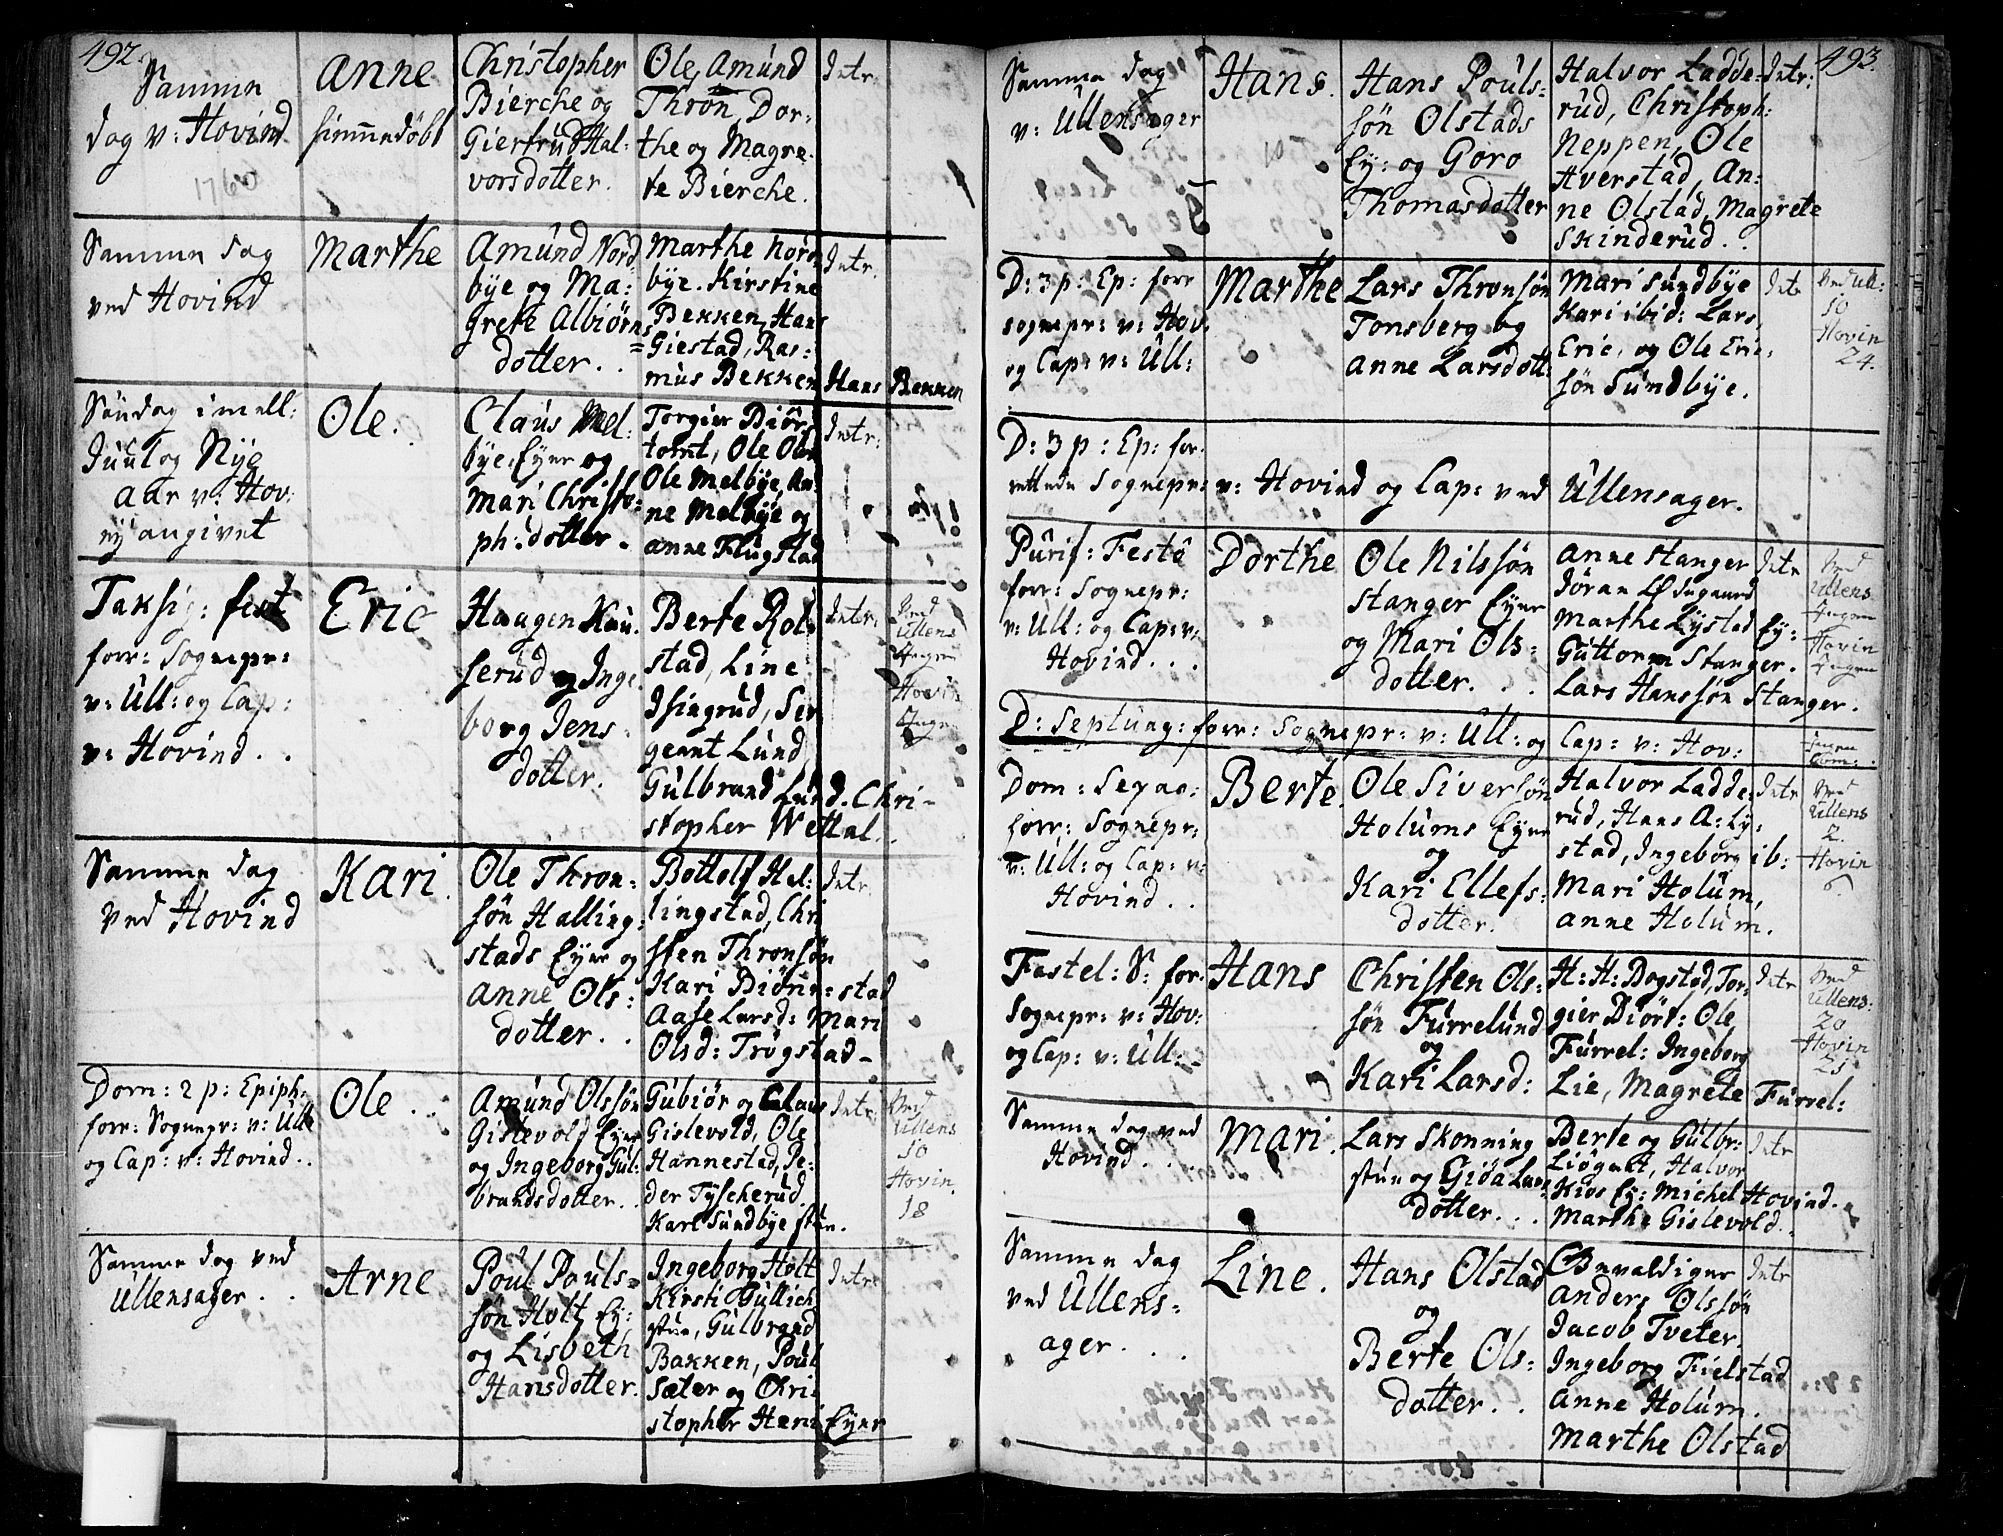 492.
Samme
dag v: Hovind
1760
Anne
hiemmedöbt
Christopher
Bierche og
Giertrud Hal-
vorsdotter.
Ole, Amund
Thron, Dor-
the og Magre-
te Bierche.
Intr.
Samme dag
ved Hovind
Marthe
Amund Nord
bÿe og Ma:
grete Albiörns
dotter . .
Marthe Nord
bÿe. Kirstine
Bekken, Hans
Giestad, Ras:
mus Bekken
Hans Bekken
Intr.
Söndag imell:
Juul og Nÿe
Aar v: Hov:
eÿ angivet
Ole.
Claus Mel:
bÿe Eÿer og
Mari Christo-
ph: dotter.
Torgier Biör
tomt, Ole Ols
Ole Melbÿe, An
ne Melbÿe og
Anne Flugstad
Intr:
Taksig: fest
forr: Sognepr:
v: Ull: og Cap:
v: Hovind . .
Eric
Haagen Kau
serud og Inge
borg Jens
dotter.
Berte Rol
stad, Line
Isingrud, Ser
geant Lund
Gulbrand Lund. Chri-
stopher Wettal . .
Intr:
Ved
Ullens
Ingen
Hovin
Ingen
Samme dag
ved Hovind
Kari
Ole Thron-
sön Halling-
stads Eÿer og
Anne Ols:
dotter . .
Bottolf Hal:
lingstad, Chri
sten Thronsön
Kari Biörn: stad
Aase Larsd: Mari
Olsd: Trögstad -
Intr.
Dom: 2 p: Epiph:
forr: Sognepr: v: Ull:
og Cap: v: Hovind . .
Ole . .
Amund Olssön
Gislevold Eÿer
og Ingeborg Gul-
brandsdotter . .
Gubiör og Claus
Gislevold, Ole
Hannestad, Pe-
der Tÿscherud
Karl Sundbÿe stun.
Intr.
Ved
Ullens
10
Hovin.
18
Samme dag ved
Ullensager . .
Arne
Poul Pouls-
sön Holt Eÿ:
og Lisbeth
Hansdotter.
Ingeborg Holt
Kirsti Gullich
stun, Gulbrand
Bakken, Poul
Sæter og Chri-
stopher Hæni Eÿer
Intr:
493.
Samme dag
v: Ullensager
Hans.
Hans Pouls-
sön Olstads
Eÿ: og Goro
Thomasdotter
Halvor Ladde-
rud, Christoph:
Neppen, Ole
Averstad, An-
ne Olstad, Magrete
Skinderud . .
Intr:
D: 3 p: Ep: forr
sognepr: v: Hov.
og Cap: v: Ull:
Marthe
Lars Thronsön
Tonsberg og
Anne Larsdott:
Mari Sundbÿe
Kari ibid: Lars
Eric, og Ole Eric,
sön Sundbÿe.
Intr
Ved Ull:
10
Hovin
24.
D: 3 p: Ep: for-
rettede Sognepr: v: Hovind og Cap: ved Ullensager.
Purif: Festô
forr: Sognepr:
v: Ull: og Cap: v:
Hovind . . .
Dorthe
Ole Nilssön
Stanger Eÿer
og Mari Ols-
dotter . . .
Anne Stanger
Jöran
Marthe Lÿstad Eÿ:
Guttorm Stanger.
Lars Hanssön Stanger.
Intr
Ved
Ullens
Ingen
Hovin
Ingen
D: Septuag: forr: Sognepr: v: Ull: og Cap: v: Hov:
Ingen
Com:
Dom: Sexag:
forr: Sognepr:
v: Ull: og Cap: v:
Hovind . .
Berte
Ole Siversön
Holums Eÿer
og
Kari Ellefs:
dotter.
Halvor Ladde-
rud, Hans A: Lÿ:
stad, Ingeborg ib:
Mari Holum,
Anne Holum.
Intr
Ved
Ullens
2
Hovin
6
Fastel: S: for.
Sognepr: v: Hov:
og Cap: v: Ull: -
Hans
Christen Ols-
sön Furrelund
og
Kari Larsd:
H: H: Dogstad, Tor-
gier Diört: Ole
Furrel: Ingeborg
Lie, Magrete Furrel:
Intr
Ved
Ullens:
20
Hovin
25
Samme dag ved
Hovind . . .
Mari.
Lars Skonning
stun og Gida Lars
dotter . . .
Berte og Gulbr:
Liögnet, Halvor
Kios Eÿ: Michel Hovind.
Marthe Gislevold.
Intr
Samme dag
ved Ullens-
ager. . .
Line.
Hans Olstad
og
Berte Ols-
dotter . .
Anders Olssön
Jacob Tveter.
Ingeborg Fielstad
Anne Holum.
Marthe Olstad
Intr